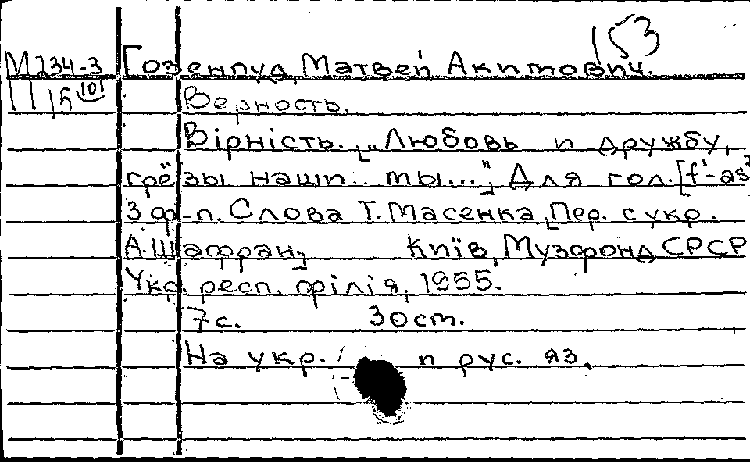 153
М234-3 Гозенпуд, Матвей Акимович.
Верность.
Вірність. „Любовь и дружбу,
грёзы наши .. ты..." Для гол. [f'-as²]
З ф-п. Слова Т. Масенка, Пер. с укр.
А. Шафран, Київ, Музфонд СРСР
Укр. респ. філія, 1955.
7с. 30ст.
На укр. и рус. яз.